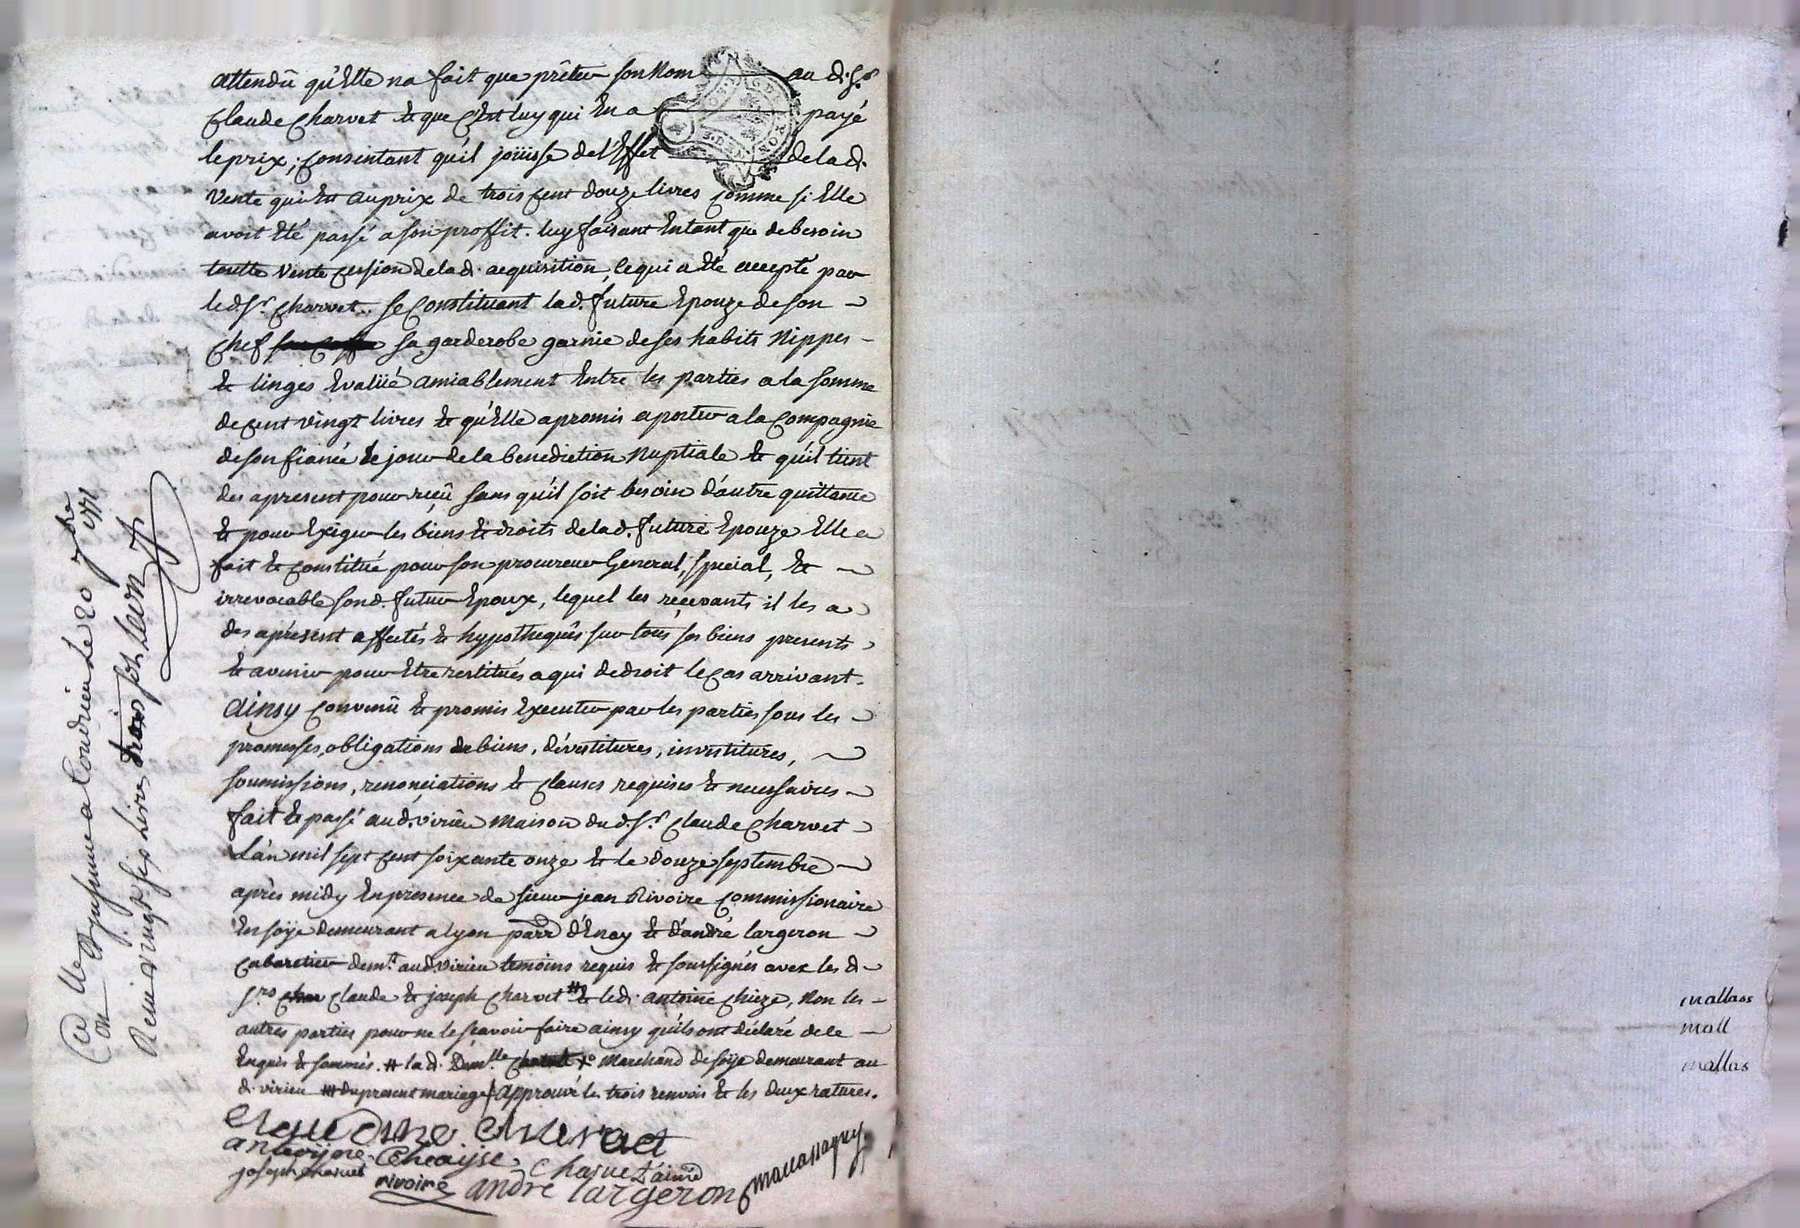 attendû qu'Elle na fait que prêter son Nom au d. Sr
Claude Charvet & que C'est luy qui En a payé
le prix; Consentant qu'il joüisse de l'Effet de la d.
Vente qui Est au prix de trois Cent douze livres Comme si Elle
avoit Eté passé a son proffit. luy faisant Entant que de besoin
toutte Vente Cession de la d. acquisition, Ce qui a Eté accepté par
le d. Sr. Charvet.. Se Constituant la d. future Epouze de son
Chef sa garderobe garnie de ses habits Nippes
& linges Evalüé amiablement Entre les parties a la somme
de Cent vingt livres & qu'Elle a promis aporter a la Compagnie
de son fiancé le jour de la benediction Nuptiale & qu'il tient
des apresent pour reçû sans qu'il soit besoin d'autre quittance
& pour Exiger les biens & droits de la d. future Epouze Elle a
fait & Constitué pour son procureur General, special, &
irrevocable son d. futur Epoux, lequel les reçevants il les a
des apresent affectés & hypothequés sur tous ses biens presents
& avenir pour Etre restitués a qui de droit le Cas arrivant.
Ainsy Convenû & promis Executer par les parties sous les
promesses, obligations de biens, dévestitures, investitures,
soumissions, renonciations & Clauses requises & necessaires
fait & passé au d. virieu maison du d. Sr. Claude Charvet
L'an mil sept Cent soixante onze & le douze septembre
après midy En presence de sieur jean Rivoire Commissionaire
En soÿe demeurant a lyon parr. d'Enay & d'andré largeron
Cabaretier demt. au d. virieu temoins requis & soussignés avec les d.
Srs Char Claude & joseph Charvet # & le d. antoine Chieze, Non les
autres parties pour ne le sçavoir faire ainsy qu'ils ont déclaré de ce
Enquis & sommés. # la d. Demlle Marchand de soÿe demeurant au
d. virieu ### du present mariage / Approuvé les trois renvois & les deux ratures.
Claudine Charvet
antoyne Cheayse
Charvet l'ainé
joseph charvet
rivoire
andre largeron
Con a Condrieu Le 20 7bre 1771
Reçu vingt sept Livres trois sols
mallass
mall
mallas